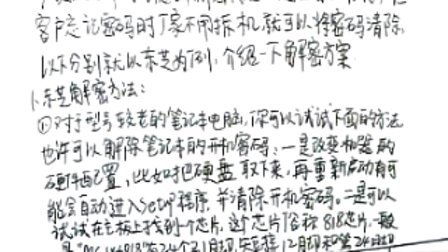 客户忘记密码时厂家不用拆机,就可以将密码清除.
以下分别就以东芝为例,介绍一下解密方案
1.东芝解密方法:
①对于型号较老的笔记本电脑,你可以试试下面的方法
也许可以解除笔记本的开机密码:一是改变机器的
硬件配置,比如把硬盘取下来,再重新启动有可
能会自动进入Setup程序,并清除开机密码。二是可以
试试在主板上找到个芯片,这个芯片俗称818芯片,一般